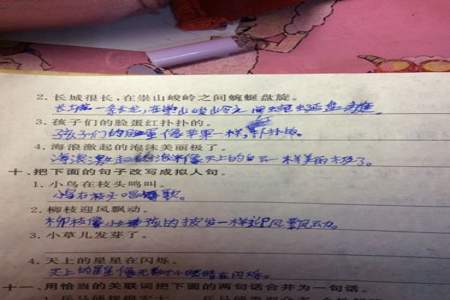 2. 长城很长,在崇山峻岭之间蜿蜒盘旋。
长城像一条长龙,在崇山峻岭之间蜿蜒盘旋。
3. 孩子们的脸蛋红扑扑的。
孩子们的脸蛋像苹果一样,红扑扑的。
4. 海浪激起的泡沫美丽极了。
海浪激起的泡沫像天上的白云一样美丽极了。
十、把下面的句子改写成拟人句。
1. 小鸟在枝头鸣叫。
小鸟在枝头唱歌。
2. 柳枝迎风飘动。
柳枝像小姑娘的头发一样迎风飘动。
3. 小草儿发芽了。
4. 天上的星星在闪烁。
天上的星星像无数小眼睛在闪烁。
十一、用恰当的关联词把下面的两句话合并为一句话。